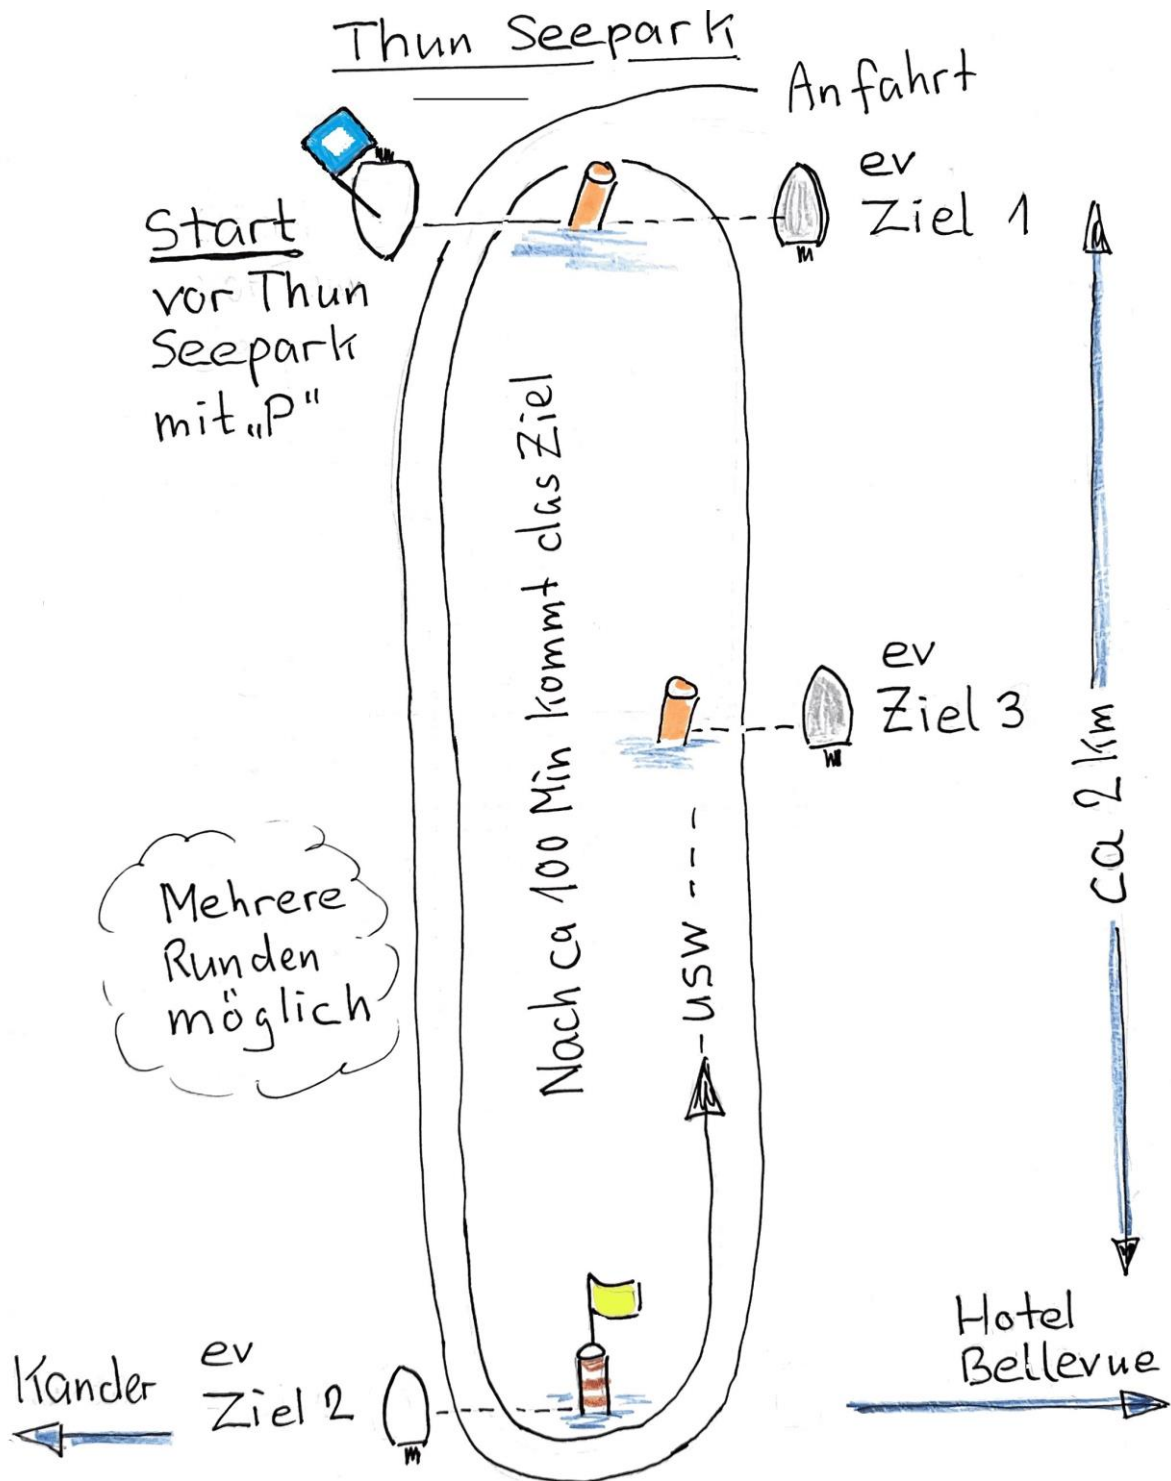 Thun Seepark
Anfahrt
ev
Ziel 1
Start
vor Thun
Seepark
mit „P“
Nach ca 100 Min kommt das Ziel
ev
Ziel 3
ca 2 km
Mehrere
Runden
möglich
usw
Hotel
Bellevue
Kander
ev
Ziel 2